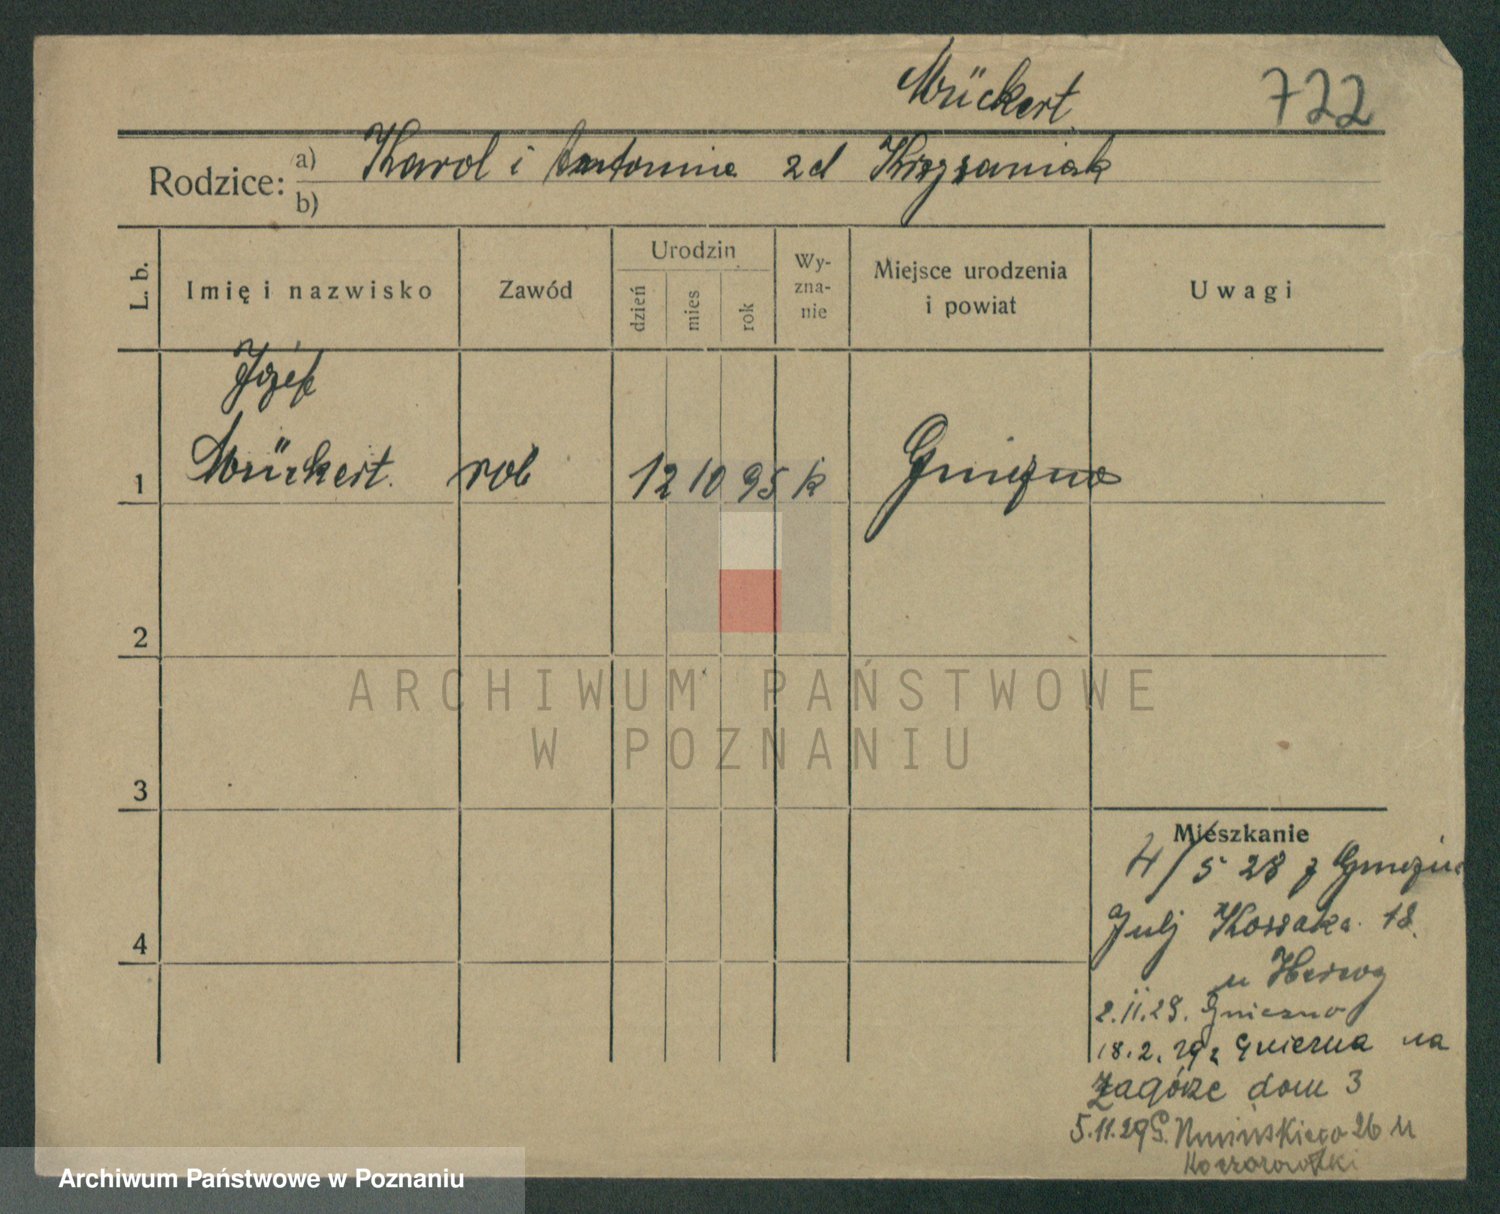 Mrückert 722
Rodzice: a) Karol i Antonina zd Krzyzaniak
b)
L. b. Imię i nazwisko Zawód Urodzin dzień mies rok Wy-zna-nie Miejsce urodzenia i powiat Uwagi
Józef
1 Mrückert. rob 12 10 95 k Gniezno
2
3
4
Mieszkanie
4/5 28 z Gniezna
Julj Kossaka 18.
u Herzog
2.II.29. Gniezno
18.2.29 z Gniezna na
Zagórze dom 3
5.11.29 G. 26 u
ARCHIWUM PAŃSTWOWE
W POZNANIU
Archiwum Państwowe w Poznaniu